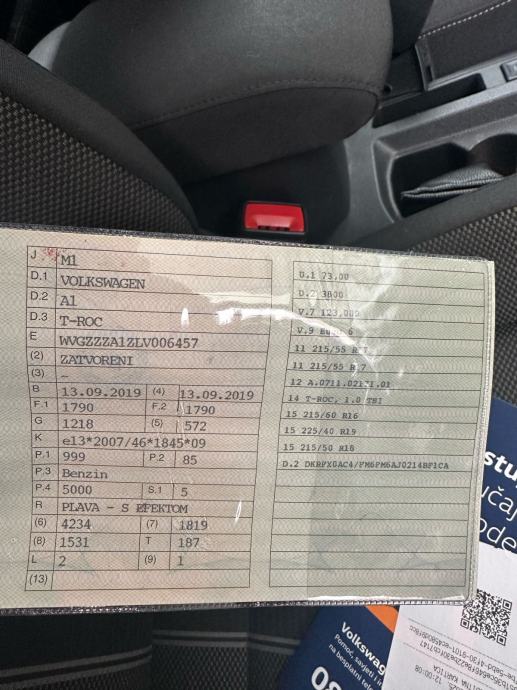 J M1
D.1 VOLKSWAGEN
D.2 A1
D.3 T-ROC
E WVGZZZA1ZLV006457
(2) ZATVORENI
(3) –
B 13.09.2019 (4) 13.09.2019
F.1 1790 F.2 1790
G 1218 (5) 572
K e13*2007/46*1845*09
P.1 999 P.2 85
P.3 Benzin
P.4 5000 S.1 5
R PLAVA - S EFEKTOM
(6) 4234 (7) 1819
(8) 1531 T 187
L 2 (9) 1
(13)
0.1 73,00
D.2 3B00
V.7 123,000
V.9 6
11 215/55
11 215/55
12
14 T-ROC, 1.0 TSI
15 215/60 R16
15 225/40 R19
15 215/50 R18
D.2
Volkswag
Pomoć, savjeti i in
na besplatni te
08
stu
učaj
ode
12:00:08
KARTICA